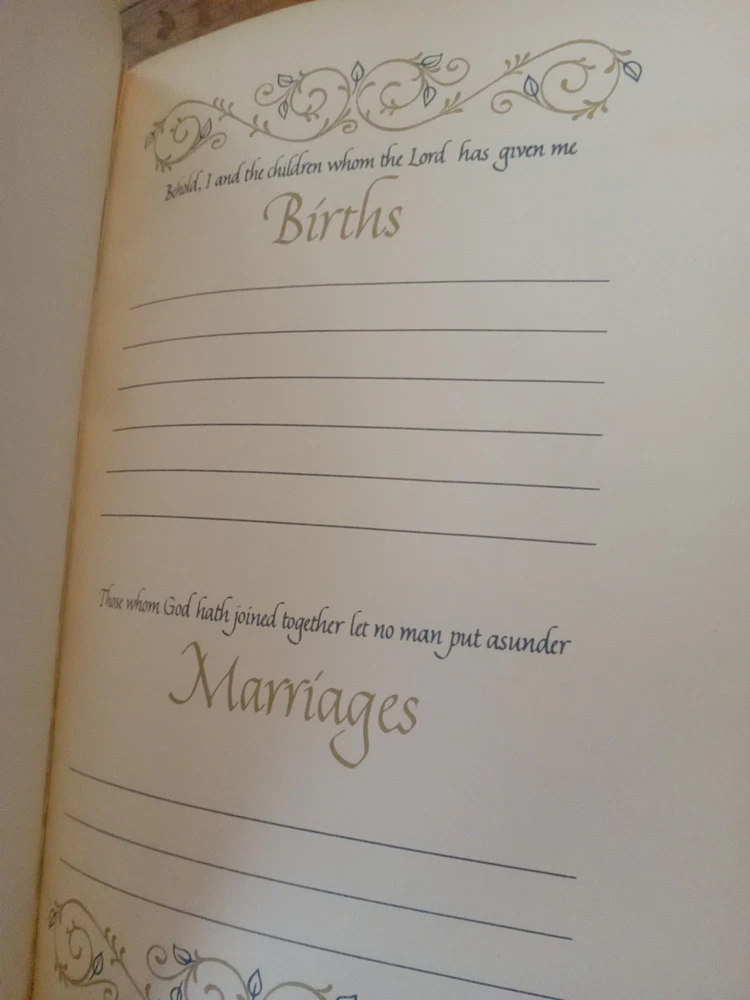 Behold, I and the children whom the Lord has given me
Births
Those whom God hath joined together let no man put asunder
Marriages